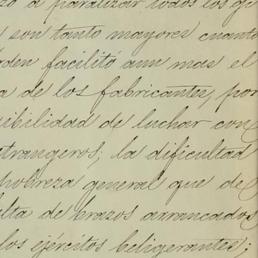 a paralizar todos los
son tanto mayores cuanto
facilitó aun mas el
a de los fabricantes, por
ibilidad de luchar con
trangeros; la dificultad
pobreza general que de
lta de brazos arrancados
los ejércitos beligerantes;